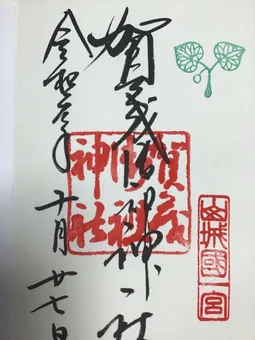 山城國一宮
賀茂御祖神社
賀茂
御祖
神社
令和元年十月廿七日